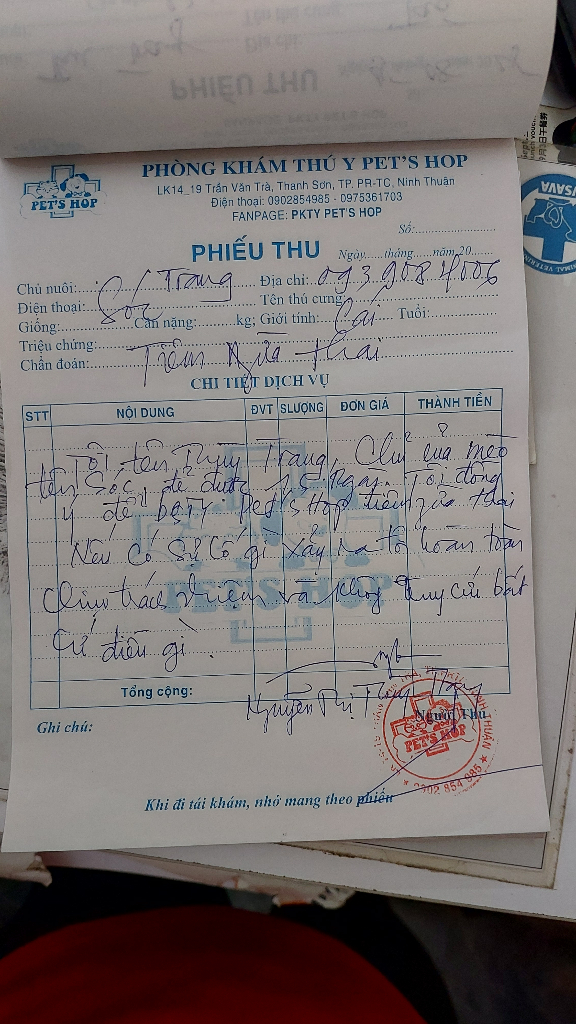 PHIẾU THU
PET'S HOP
PHÒNG KHÁM THÚ Y PET'S HOP
LK14_19 Trần Văn Trà, Thanh Sơn, TP. PR-TC, Ninh Thuận
Điện thoại: 0902854985 - 0975361703
FANPAGE: PKTY PET'S HOP
Số:
PHIẾU THU
Ngày......tháng......năm 20.......
Chủ nuôi: Trang Địa chỉ: 0939084006
Điện thoại: Sóc Tên thú cưng:
Giống: Cân nặng: kg; Giới tính: Cái Tuổi:
Triệu chứng:
Chẩn đoán: Tiêm ngừa thai
CHI TIẾT DỊCH VỤ
STT NỘI DUNG ĐVT SLƯỢNG ĐƠN GIÁ THÀNH TIỀN
Tôi tên Thùy Trang, Chủ của mèo
tên Sóc, đẻ được 15 ngày. Tôi đồng
ý để Pet's Hop tiêm ngừa thai
Nếu có sự cố gì xảy ra tôi hoàn toàn
chịu trách nhiệm và không truy cứu bất
cứ điều gì.
Tổng cộng:
Nguyễn Thị Thùy Trang
Ghi chú:
Người Thu
PET'S HOP
0902 854 985
Khi đi tái khám, nhớ mang theo phiếu